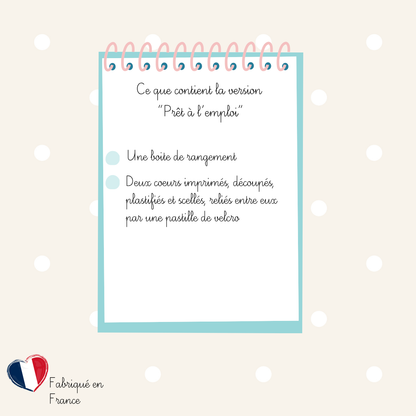 Ce que contient la version
"Prêt à l'emploi"
Une boite de rangement
Deux coeurs imprimés, découpés,
plastifiés et scellés, reliés entre eux
par une pastille de velcro
Fabriqué en
France